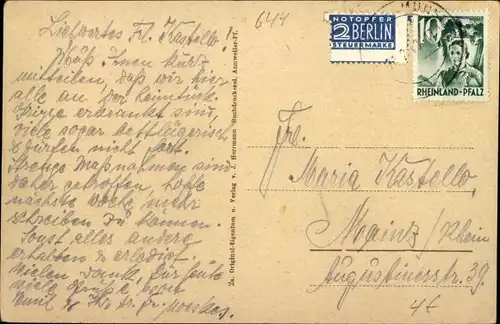 644
NOTOPFER
2 BERLIN
STEUERMARKE
10
RHEINLAND-PFALZ
Liebwertes Frl. Kastello!
Muß Ihnen kurz
mitteilen, daß wir hier
alle an der heimtück.
Grippe erkrankt sind,
viele sogar bettlägerisch
& dürfen nicht fort.
Strenge Maßnahmen sind
daher getroffen, hoffe
nächste Woche mehr
schreiben zu können.
Sonst alles
erhalten & erledigt.
Vielen Dank, für heute
viele Grüße von
2a. Original-Eigentum u. Verlag v. J. Herrmann Buchdruckerei, Annweiler-Pf.
Frl.
Maria Kastello
Mainz/Rhein
Augustinerstr. 39.
4€